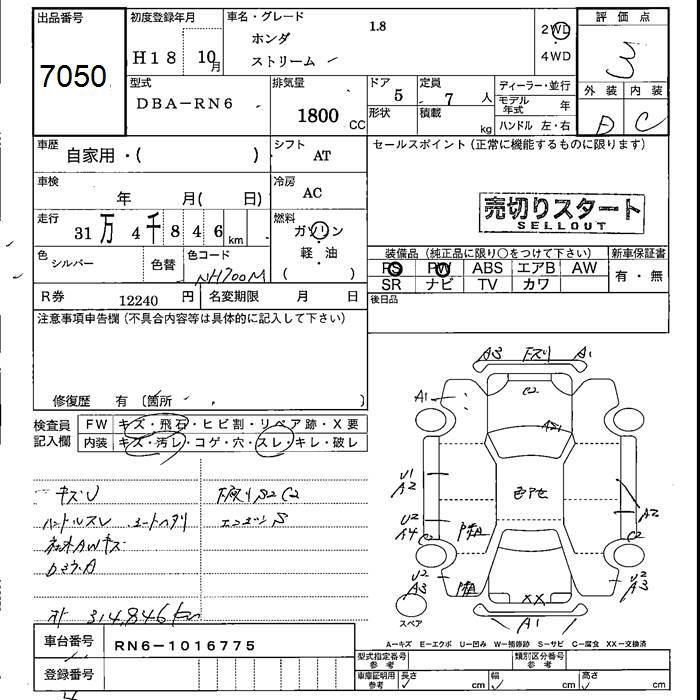 出品番号
7050
初度登録年月
H18 10月
車名・グレード
1.8
ホンダ
ストリーム
2WD
4WD
評価点
3
外装 内装
D C
型式
DBA-RN6
排気量
1800 CC
ドア
5
定員
7 人
形状
積載
kg
ディーラー・並行
モデル年式 年
ハンドル 左・右
車歴
自家用・( )
シフト
AT
セールスポイント(正常に機能するものに限ります)
車検
年 月( 日)
冷房
AC
売切りスタート
SELLOUT
走行
31万4千846km
燃料
ガソリン
軽・油
( )
色
シルバー
色替
色コード
NH700M
装備品(純正品に限り○をつけて下さい)
PS PW ABS エアB AW
SR ナビ TV カワ
新車保証書
有・無
R券
12240 円
名変期限 月 日
後日品
注意事項申告欄(不具合内容等は具体的に記入して下さい)
修復歴 有(箇所 )
検査員記入欄
FW キズ・飛石・ヒビ割・リペア跡・X要
内装 キズ・汚レ・コゲ・穴・スレ・キレ・破レ
キズU
ハンドルスレ シートヘタリ
下廻りS2C2
エンジンS
314,846km
A3 下スリ A1
C2
A1
AS1
U1
A2
色アセ
U2
A4
C2
A2
C2
U2
A3
U2
A3
XX
A1
スペア
A-キズ E-エクボ U-凹み W-補修跡 S-サビ C-腐食 XX-交換済
車台番号
RN6-1016775
登録番号
型式指定番号参考
類別区分番号参考
車庫証明用参考
長さ cm
幅 cm
高さ cm